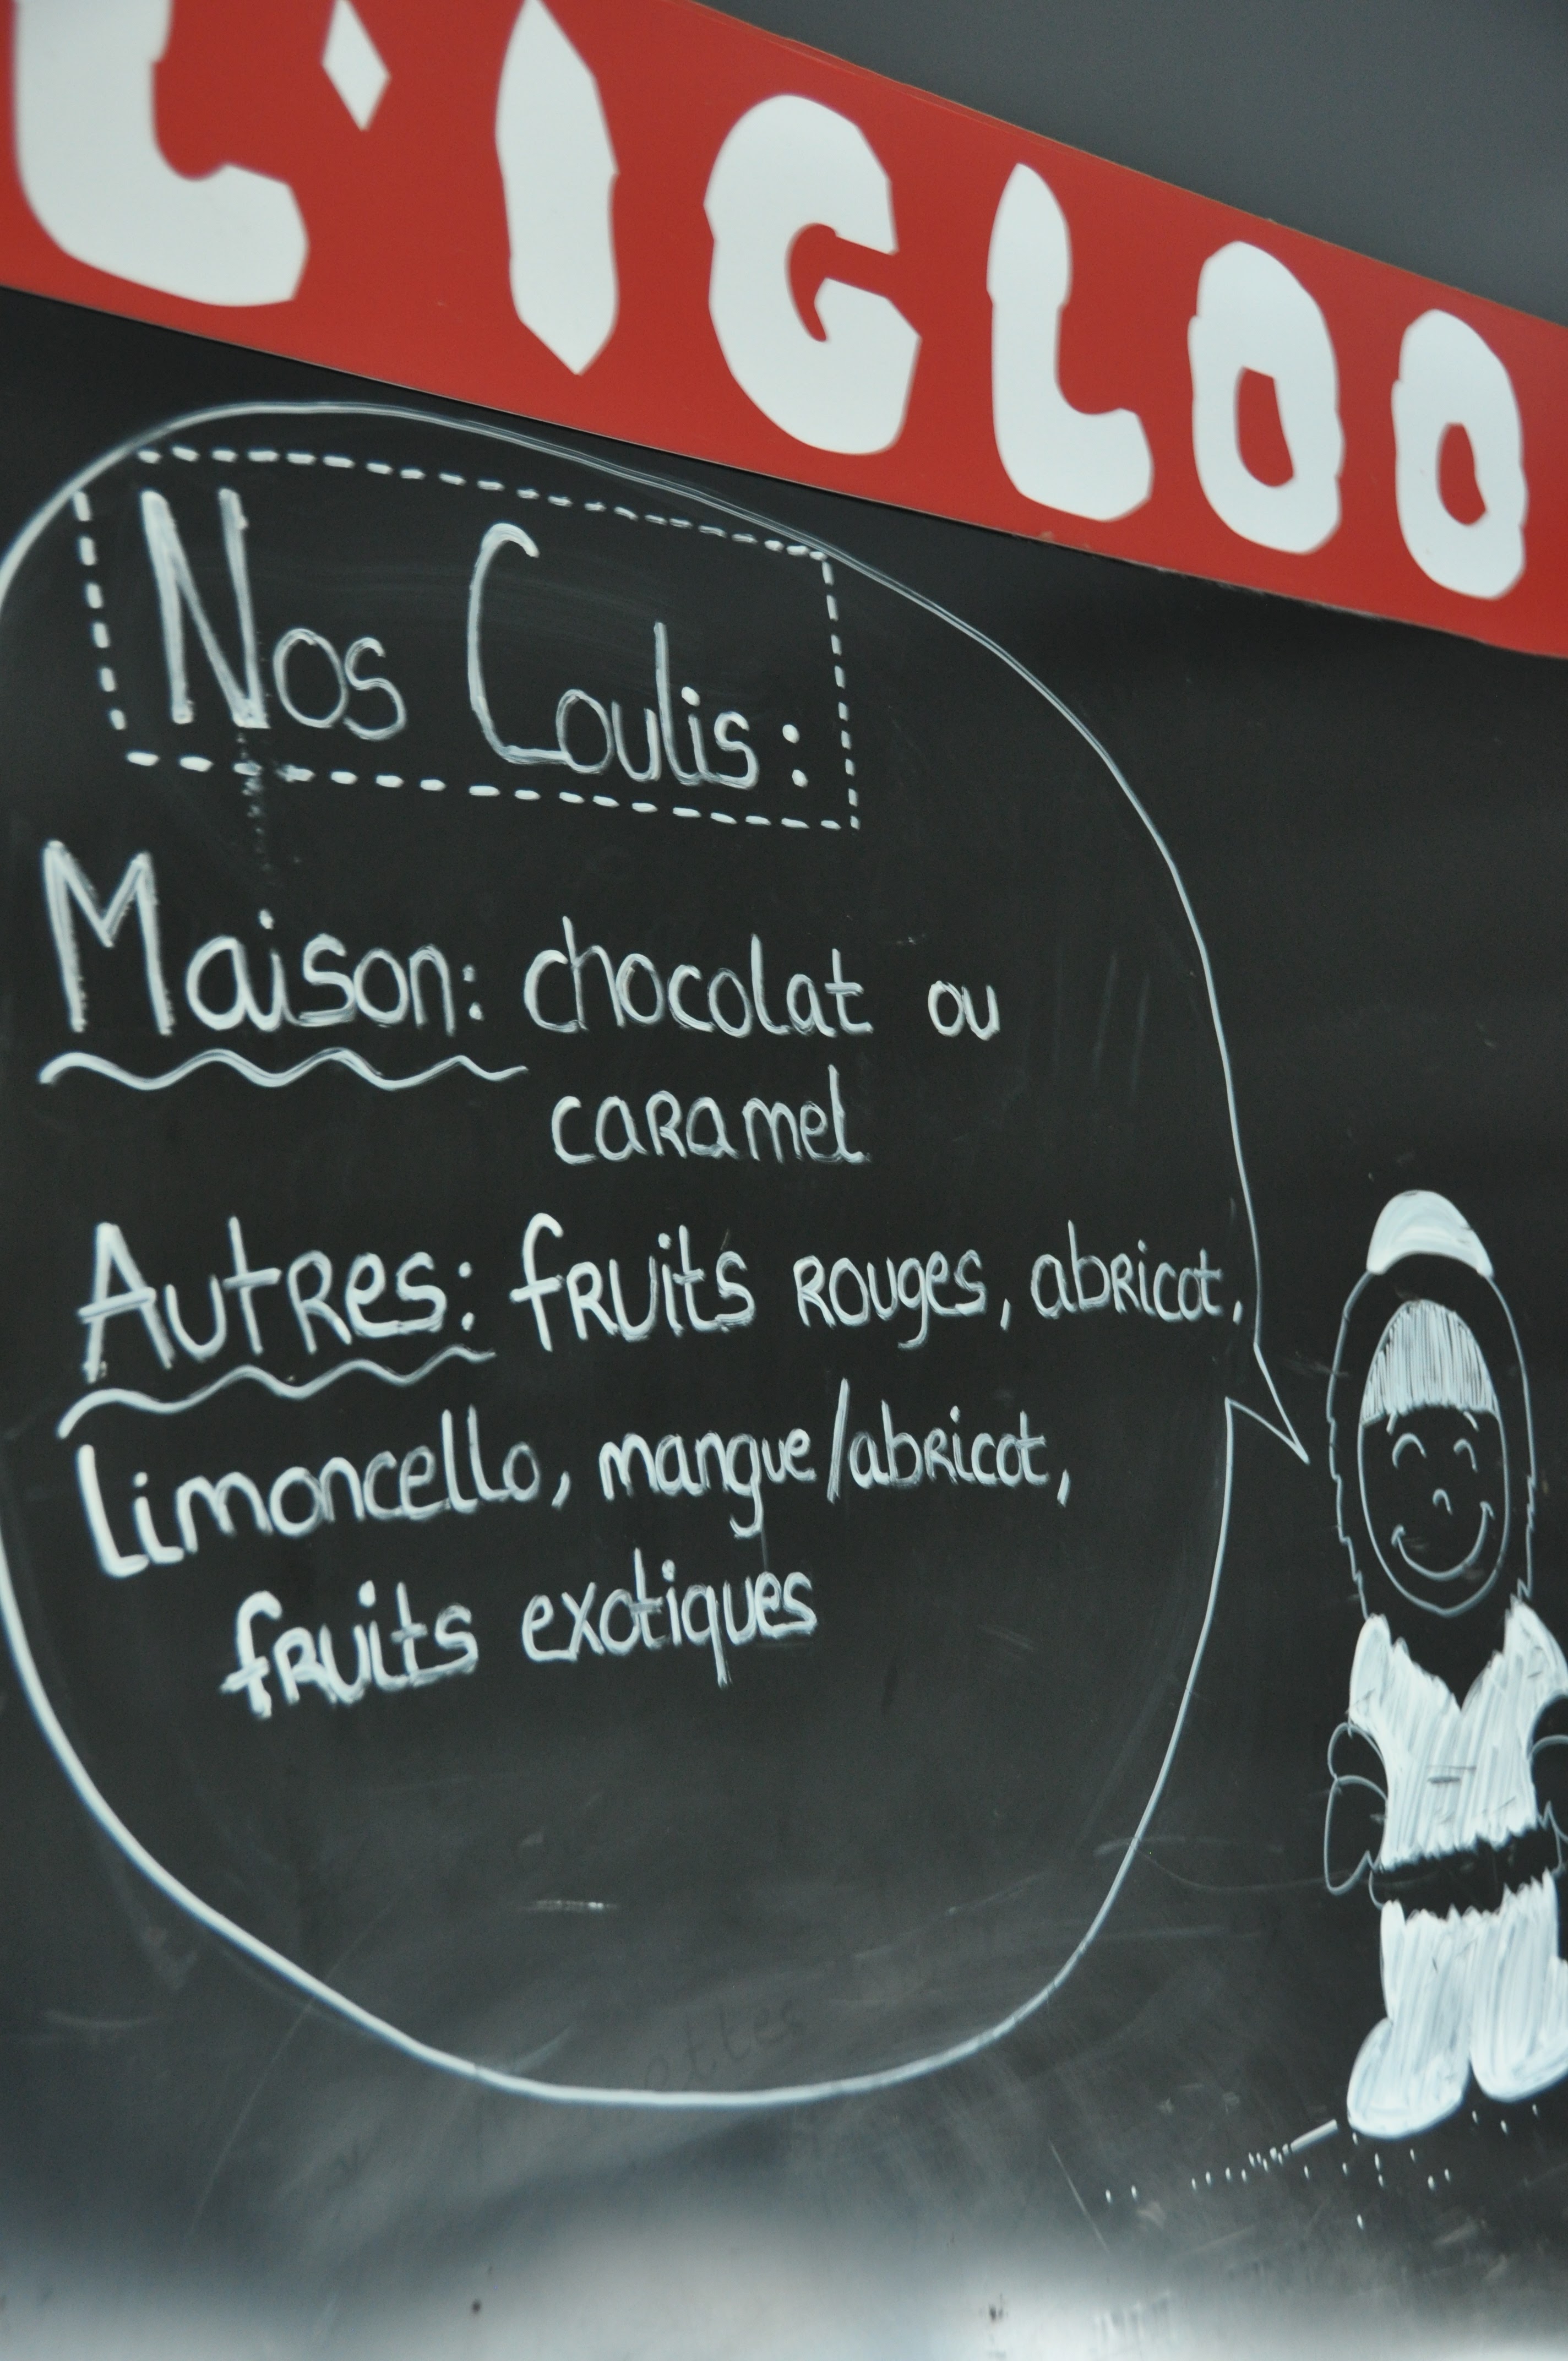 L'IGLOO
Nos Coulis :
Maison : chocolat ou
caramel
Autres : fruits rouges, abricot,
limoncello, mangue/abricot,
fruits exotiques